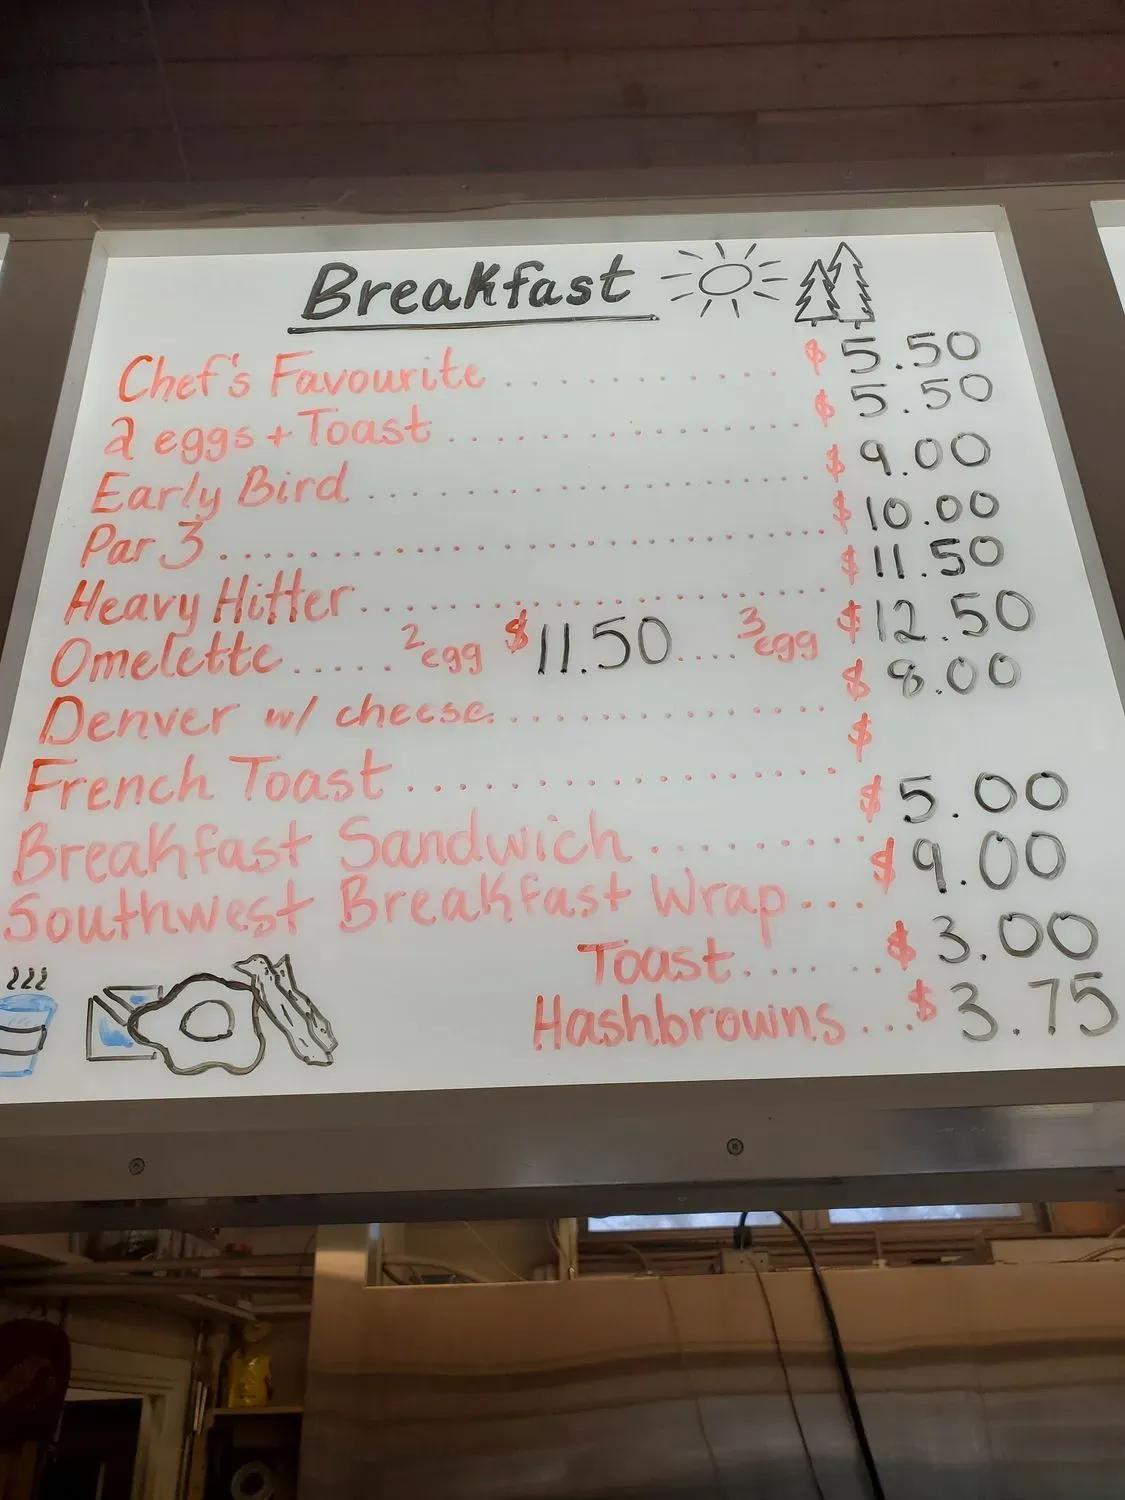 Breakfast
Chef's Favourite ............ $ 5.50
2 eggs + Toast ................ $ 5.50
Early Bird .................... $ 9.00
Par 3 ........................... $ 10.00
Heavy Hitter ..................... $ 11.50
Omelette ..... 2 egg $ 11.50 .... 3 egg $ 12.50
Denver w/ cheese ................ $ 8.00
French Toast ................. $
Breakfast Sandwich ......... $ 5.00
Southwest Breakfast Wrap ... $ 9.00
Toast ....... $ 3.00
Hashbrowns ... $ 3.75